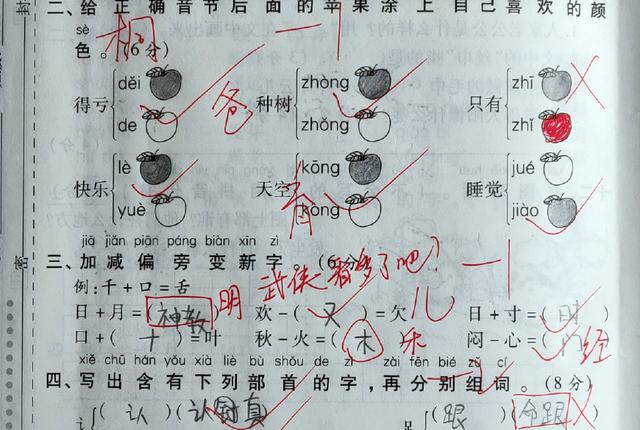 二、给正确音节后面的苹果涂上自己喜欢的颜
sè
色。(6分) 桐 一1
得亏 děi de 爸 种树 zhòng zhǒng 只有 zhī zhǐ
快乐 lè yuè 天空 kōng kòng 睡觉 jué jiào
jiā jiǎn piān páng biàn xīn zì
三、加减偏旁变新字。(6分) 一1
例:千+口=舌 武侠看多了吧?
日+月=(神教) 明 欢-(又)=欠 儿 日+寸=(时)
口+(十)=叶 秋-火=(禾) 闷-心=(门) 经
xiě chū hán yǒu xià liè bù shǒu de zì zài fēn bié zǔ cí
四、写出含有下列部首的字,再分别组词。(8分)
讠 (认)(认真) 足 (跟)(命跟)